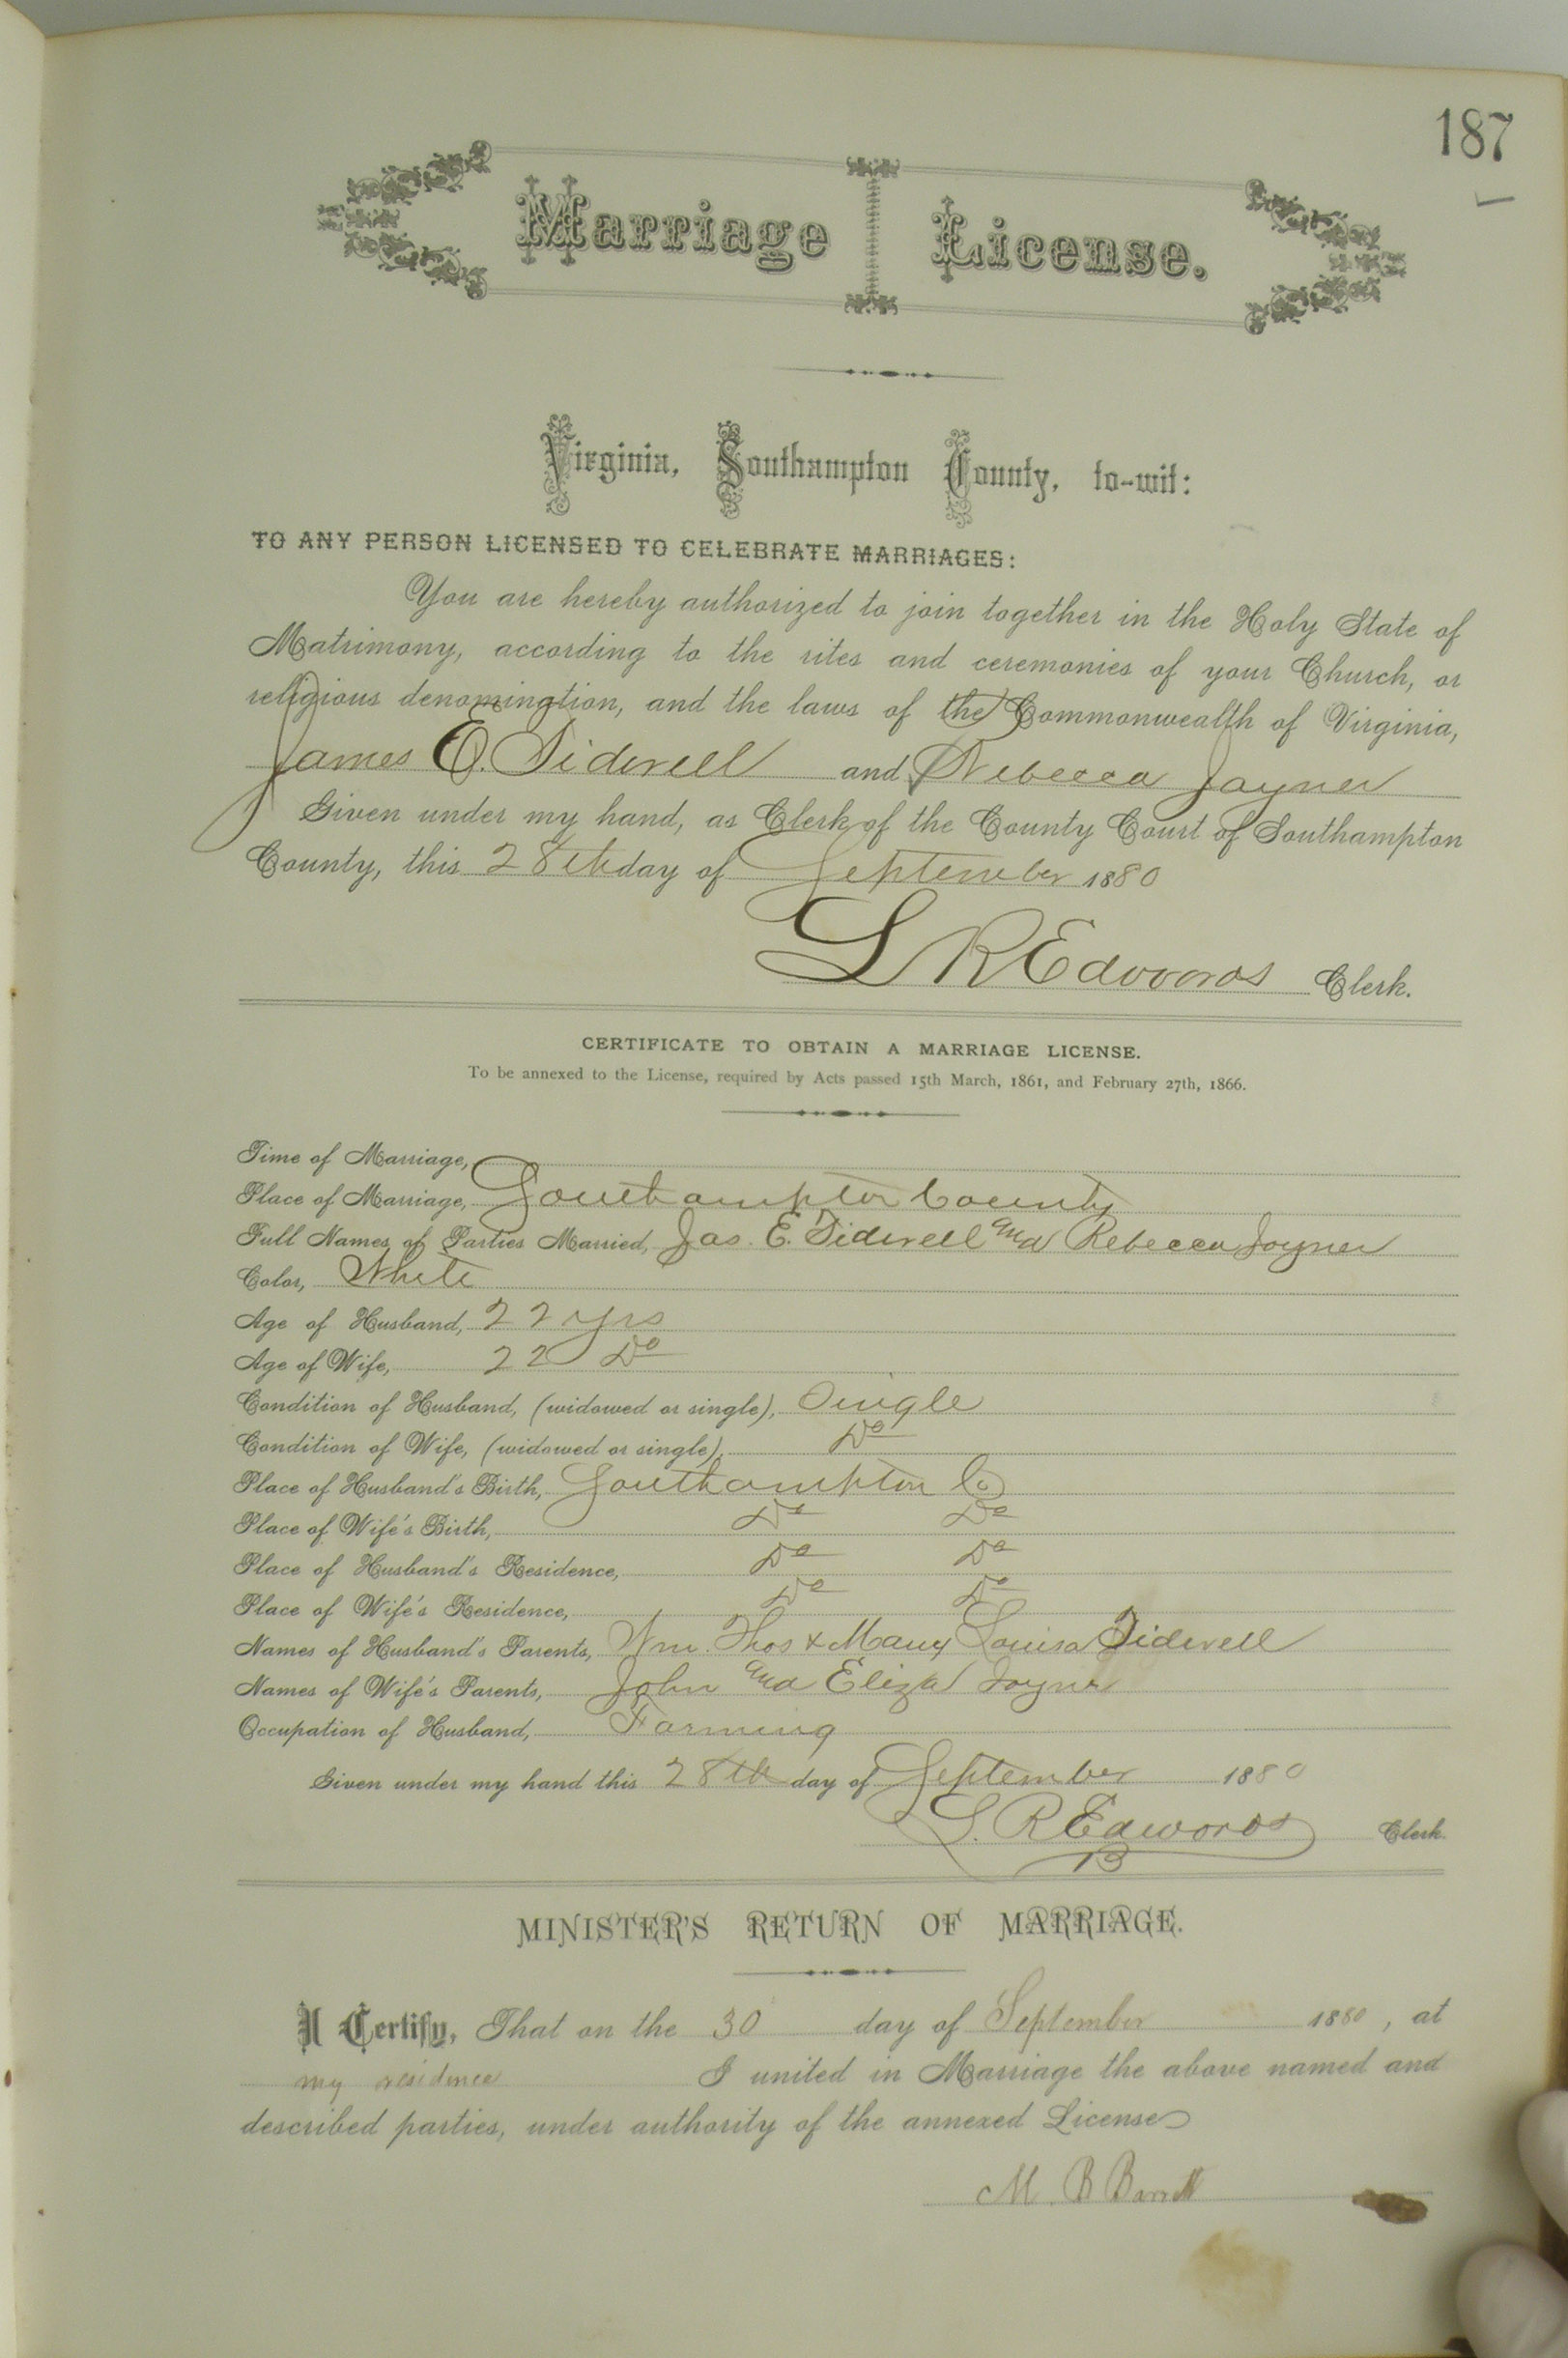 187
Marriage License.
Virginia, Southampton County, to-wit:
TO ANY PERSON LICENSED TO CELEBRATE MARRIAGES:
You are hereby authorized to join together in the Holy State of
Matrimony, according to the rites and ceremonies of your Church, or
religious denomination, and the laws of the Commonwealth of Virginia,
James E. Tidwell and Rebecca Joyner
Given under my hand, as Clerk of the County Court of Southampton
County, this 28th day of September 1880
L R Edwards Clerk.
CERTIFICATE TO OBTAIN A MARRIAGE LICENSE.
To be annexed to the License, required by Acts passed 15th March, 1861, and February 27th, 1866.
Time of Marriage,
Place of Marriage, Southampton County
Full Names of Parties Married, Jas. E. Tidwell and Rebecca Joyner
Color, White
Age of Husband, 22 yrs
Age of Wife, 22 Do
Condition of Husband, (widowed or single), Single
Condition of Wife, (widowed or single), Do
Place of Husband's Birth, Southampton Co
Place of Wife's Birth, Do Do
Place of Husband's Residence, Do Do
Place of Wife's Residence, Do Do
Names of Husband's Parents, Wm. Thos & Mary Louisa Tidwell
Names of Wife's Parents, John and Eliza Joyner
Occupation of Husband, Farming
Given under my hand this 28th day of September 1880
L. R Edwards Clerk.
MINISTER'S RETURN OF MARRIAGE.
I Certify, That on the 30 day of September 1880, at
my residence I united in Marriage the above named and
described parties, under authority of the annexed License
M. B Barrett